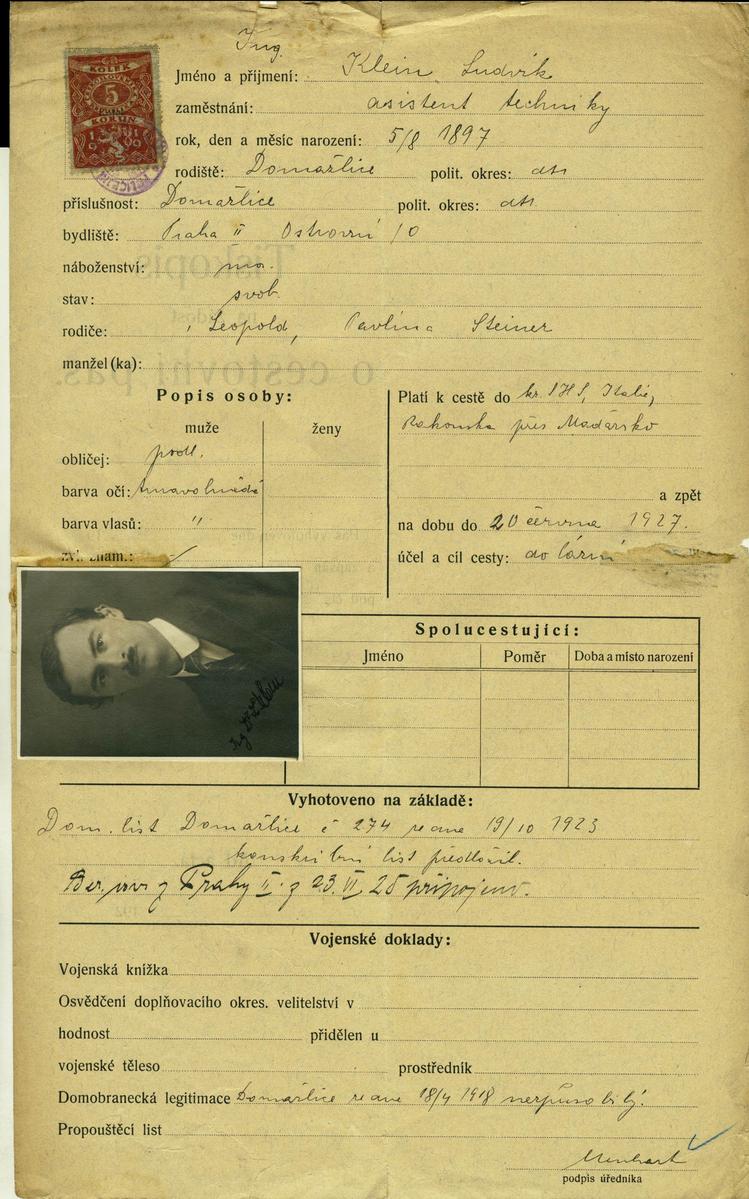 KOLEK
5
KORUN
1919
Ing.
Jméno a přijmení: Klein Ludvík
zaměstnání: asistent techniky
rok, den a měsíc narození: 5/8 1897
rodiště: Domažlice polit. okres: dtt
příslušnost: Domažlice polit. okres: dtt
bydliště: Praha II Ostrovní 10
náboženství:
stav: svob.
rodiče: Leopold, Pavlína Steiner
manžel (ka):
Popis osoby:
muže ženy
obličej: podl.
barva očí: tmavohnědé
barva vlasů: "
zvl. znam.: /
Platí k cestě do kr. SHS, Italie,
Rakouska přes Maďarsko
a zpět
na dobu do 20 června 1927.
účel a cíl cesty: do lázní
Ing Dr L Klein
Spolucestující:
Jméno Poměr Doba a místo narození
Vyhotoveno na základě:
Dom. list Domažlice č 274 ze dne 19/10 1923
konskribní list předložil.
Ber. z Prahy II. z 23. VI. 25 připojeno.
Vojenské doklady:
Vojenská knížka
Osvědčení doplňovacího okres. velitelství v
hodnost přidělen u
vojenské těleso prostředník
Domobranecká legitimace Domažlice ze dne 18/4 1918 nezpůsobilý.
Propouštěcí list
podpis úředníka